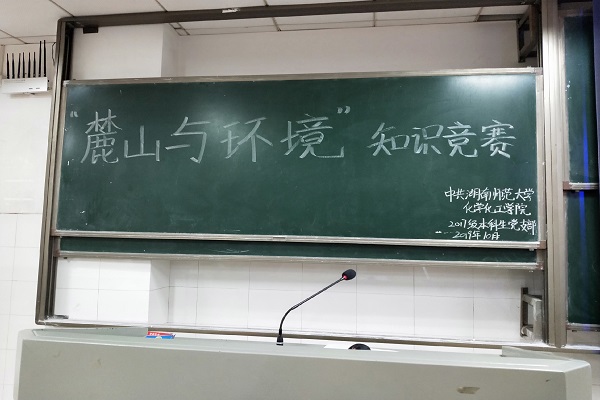 “麓山与环境”知识竞赛
中共湖南师范大学
化学化工学院
2017级本科生党支部
2019年10月